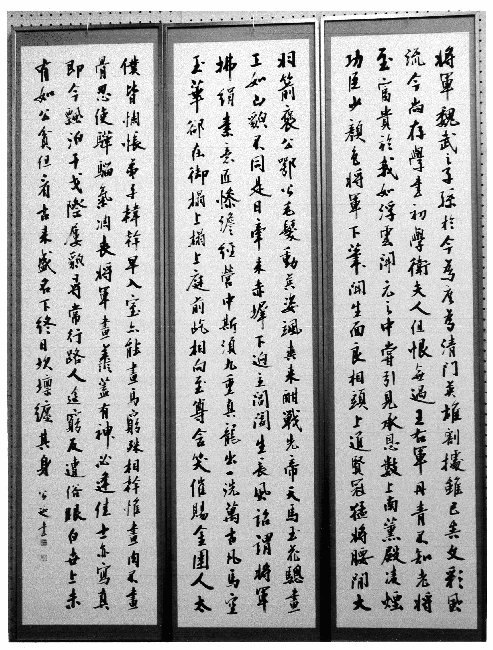 將軍魏武之子孫於今為庶為清門英雄割據雖已矣文彩風
流今尚存學書初學衛夫人但恨無過王右軍丹青不知老將
至富貴於我如浮雲開元之中嘗引見承恩數上南薰殿凌煙
功臣少顏色將軍下筆開生面良相頭上進賢冠猛將腰間大
羽箭褒公鄂公毛髮動英姿颯爽來酣戰先帝天馬玉花驄畫
工如山貌不同是日牽來赤墀下迥立閶闔生長風詔謂將軍
拂絹素意匠慘澹經營中斯須九重真龍出一洗萬古凡馬空
玉華卻在御榻上榻上庭前屹相向至尊含笑催賜金圉人太
僕皆惆悵弟子韓幹早入室亦能畫馬窮殊相幹惟畫肉不畫
骨忍使驊騮氣凋喪將軍畫善蓋有神必逢佳士亦寫真
即今飄泊干戈際屢貌尋常行路人途窮反遭俗眼白世上未
有如公貧但看古來盛名下終日坎壈纏其身